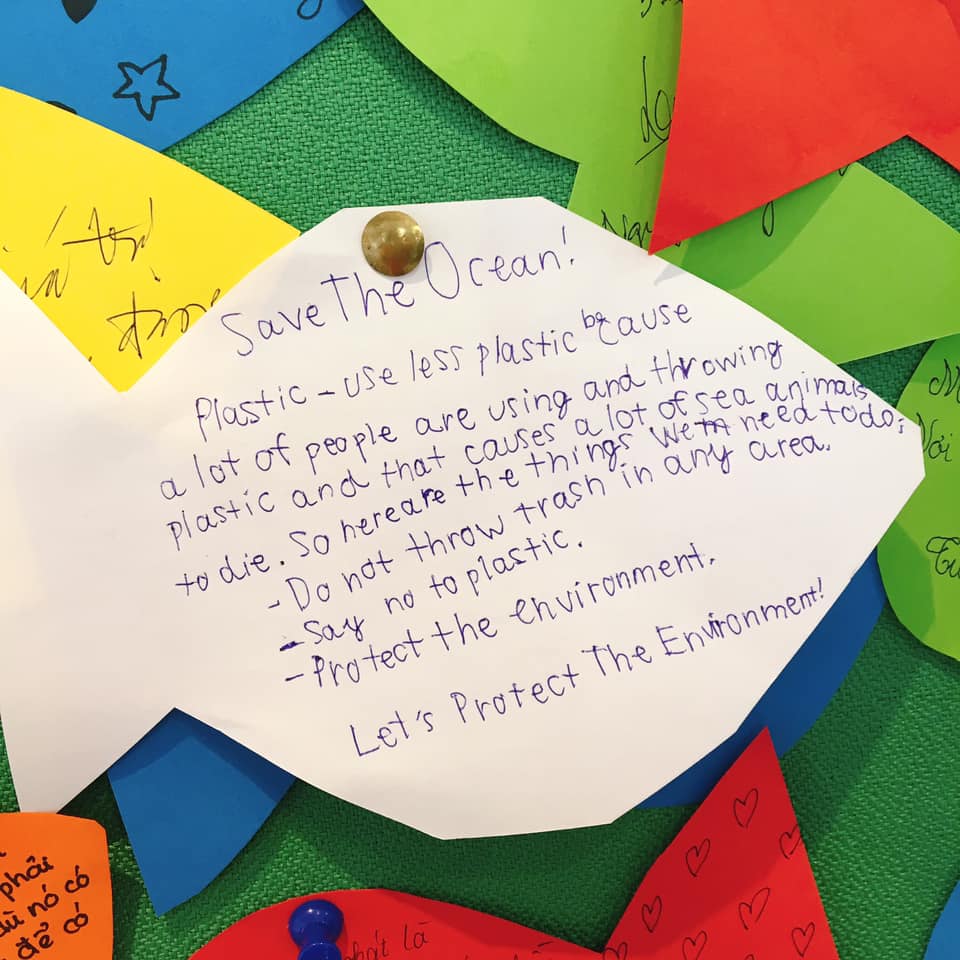 Save The Ocean!
Plastic - use less plastic because
a lot of people are using and throwing
plastic and that causes a lot of sea animals
to die. So here are the things we need to do:
- Do not throw trash in any area.
- Say no to plastic.
- Protect the environment.
Let's Protect The Environment!
Nơi
phải
nó có
để có
là